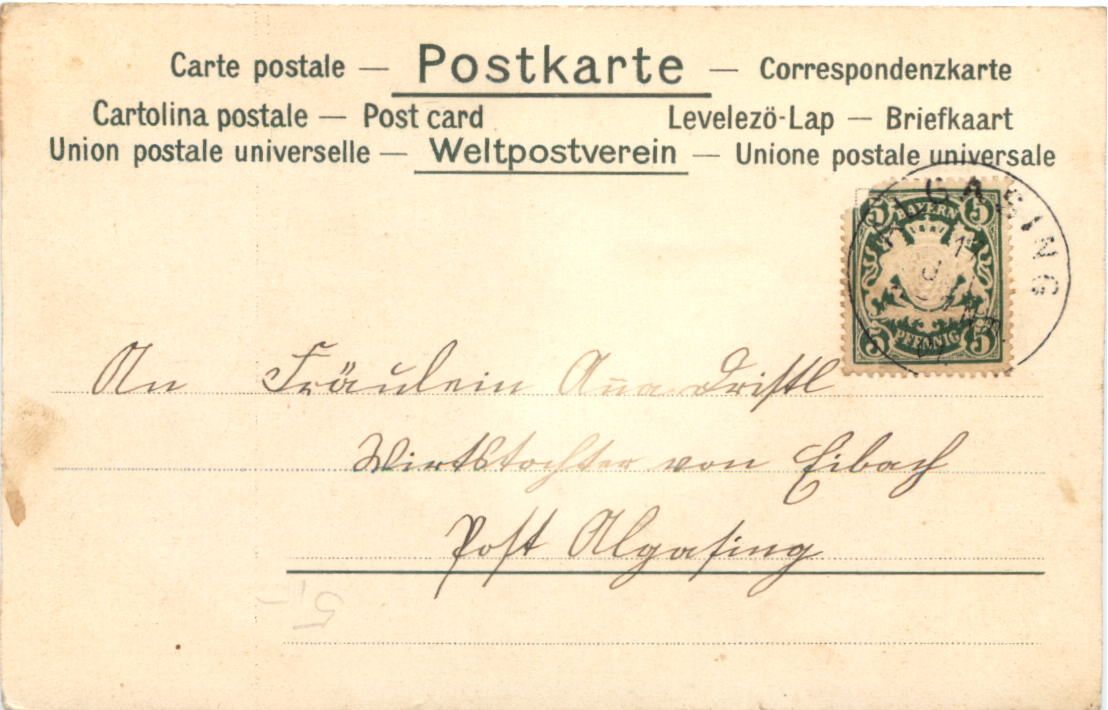 Carte postale — Postkarte — Correspondenzkarte
Cartolina postale — Post card Levelezö-Lap — Briefkaart
Union postale universelle — Weltpostverein — Unione postale universale
ALGASING
5 BAYERN 5
5 PFENNIG 5
An Fräulein Anna Dristl
Wirtstochter von Eibach
Post Algasing
5,-